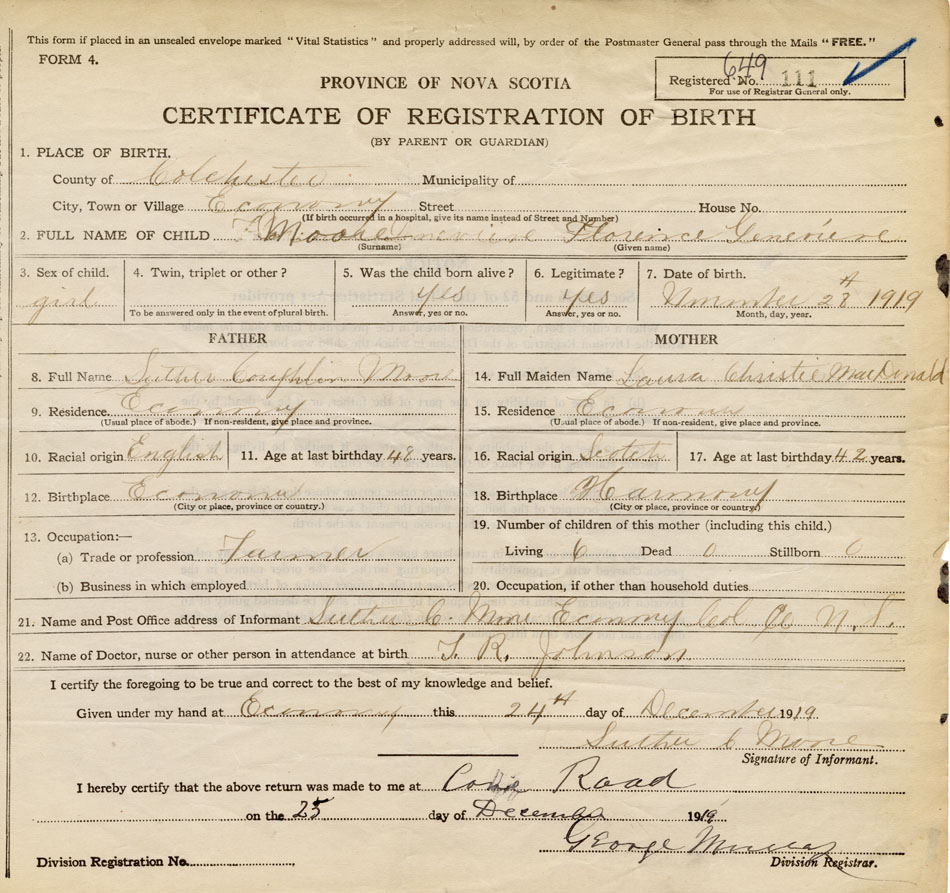 This form if placed in an unsealed envelope marked "Vital Statistics" and properly addressed will, by order of the Postmaster General pass through the Mails "FREE."
FORM 4.
649
Registered No. 111
For use of Registrar General only.
PROVINCE OF NOVA SCOTIA
CERTIFICATE OF REGISTRATION OF BIRTH
(BY PARENT OR GUARDIAN)
1. PLACE OF BIRTH.
County of Colchester Municipality of
City, Town or Village Economy Street House No.
(If birth occurred in a hospital, give its name instead of Street and Number)
2. FULL NAME OF CHILD Moore Florence Genevieve
(Surname) (Given name)
3. Sex of child. 4. Twin, triplet or other? 5. Was the child born alive? 6. Legitimate? 7. Date of birth.
girl yes yes November 28th 1919
To be answered only in the event of plural birth. Answer, yes or no. Answer, yes or no. Month, day, year.
FATHER MOTHER
8. Full Name Luther Coughlin Moore 14. Full Maiden Name Laura Christie MacDonald
9. Residence. Economy 15. Residence Economy
(Usual place of abode.) If non-resident, give place and province. (Usual place of abode.) If non-resident, give place and province.
10. Racial origin English 11. Age at last birthday 48 years. 16. Racial origin Scotch 17. Age at last birthday 42 years.
12. Birthplace Economy 18. Birthplace Harmony
(City or place, province or country.) (City or place, province or country)
13. Occupation:— 19. Number of children of this mother (including this child.)
(a) Trade or profession Farmer Living 6 Dead 0 Stillborn 0
(b) Business in which employed 20. Occupation, if other than household duties
21. Name and Post Office address of Informant Luther C. Moore Economy Col Co N.S.
22. Name of Doctor, nurse or other person in attendance at birth T. R. Johnson
I certify the foregoing to be true and correct to the best of my knowledge and belief.
Given under my hand at Economy this 24th day of December 1919
Luther C Moore
Signature of Informant.
I hereby certify that the above return was made to me at Road
on the 25 day of December 1919
George
Division Registration No. Division Registrar.